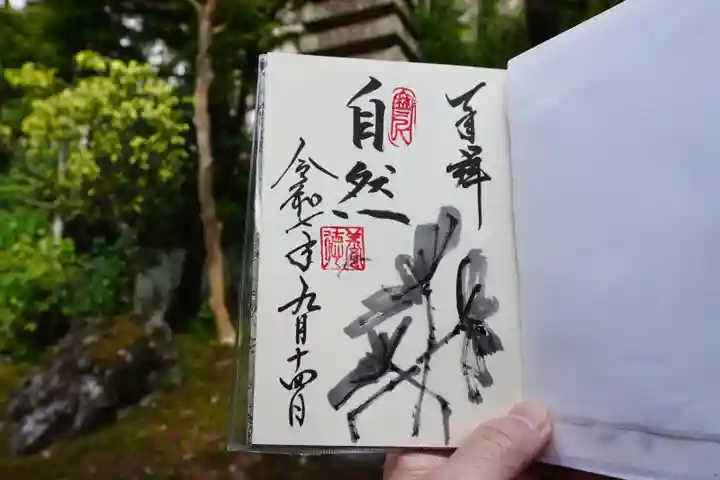 奉拝
自然
令和七年九月十四日